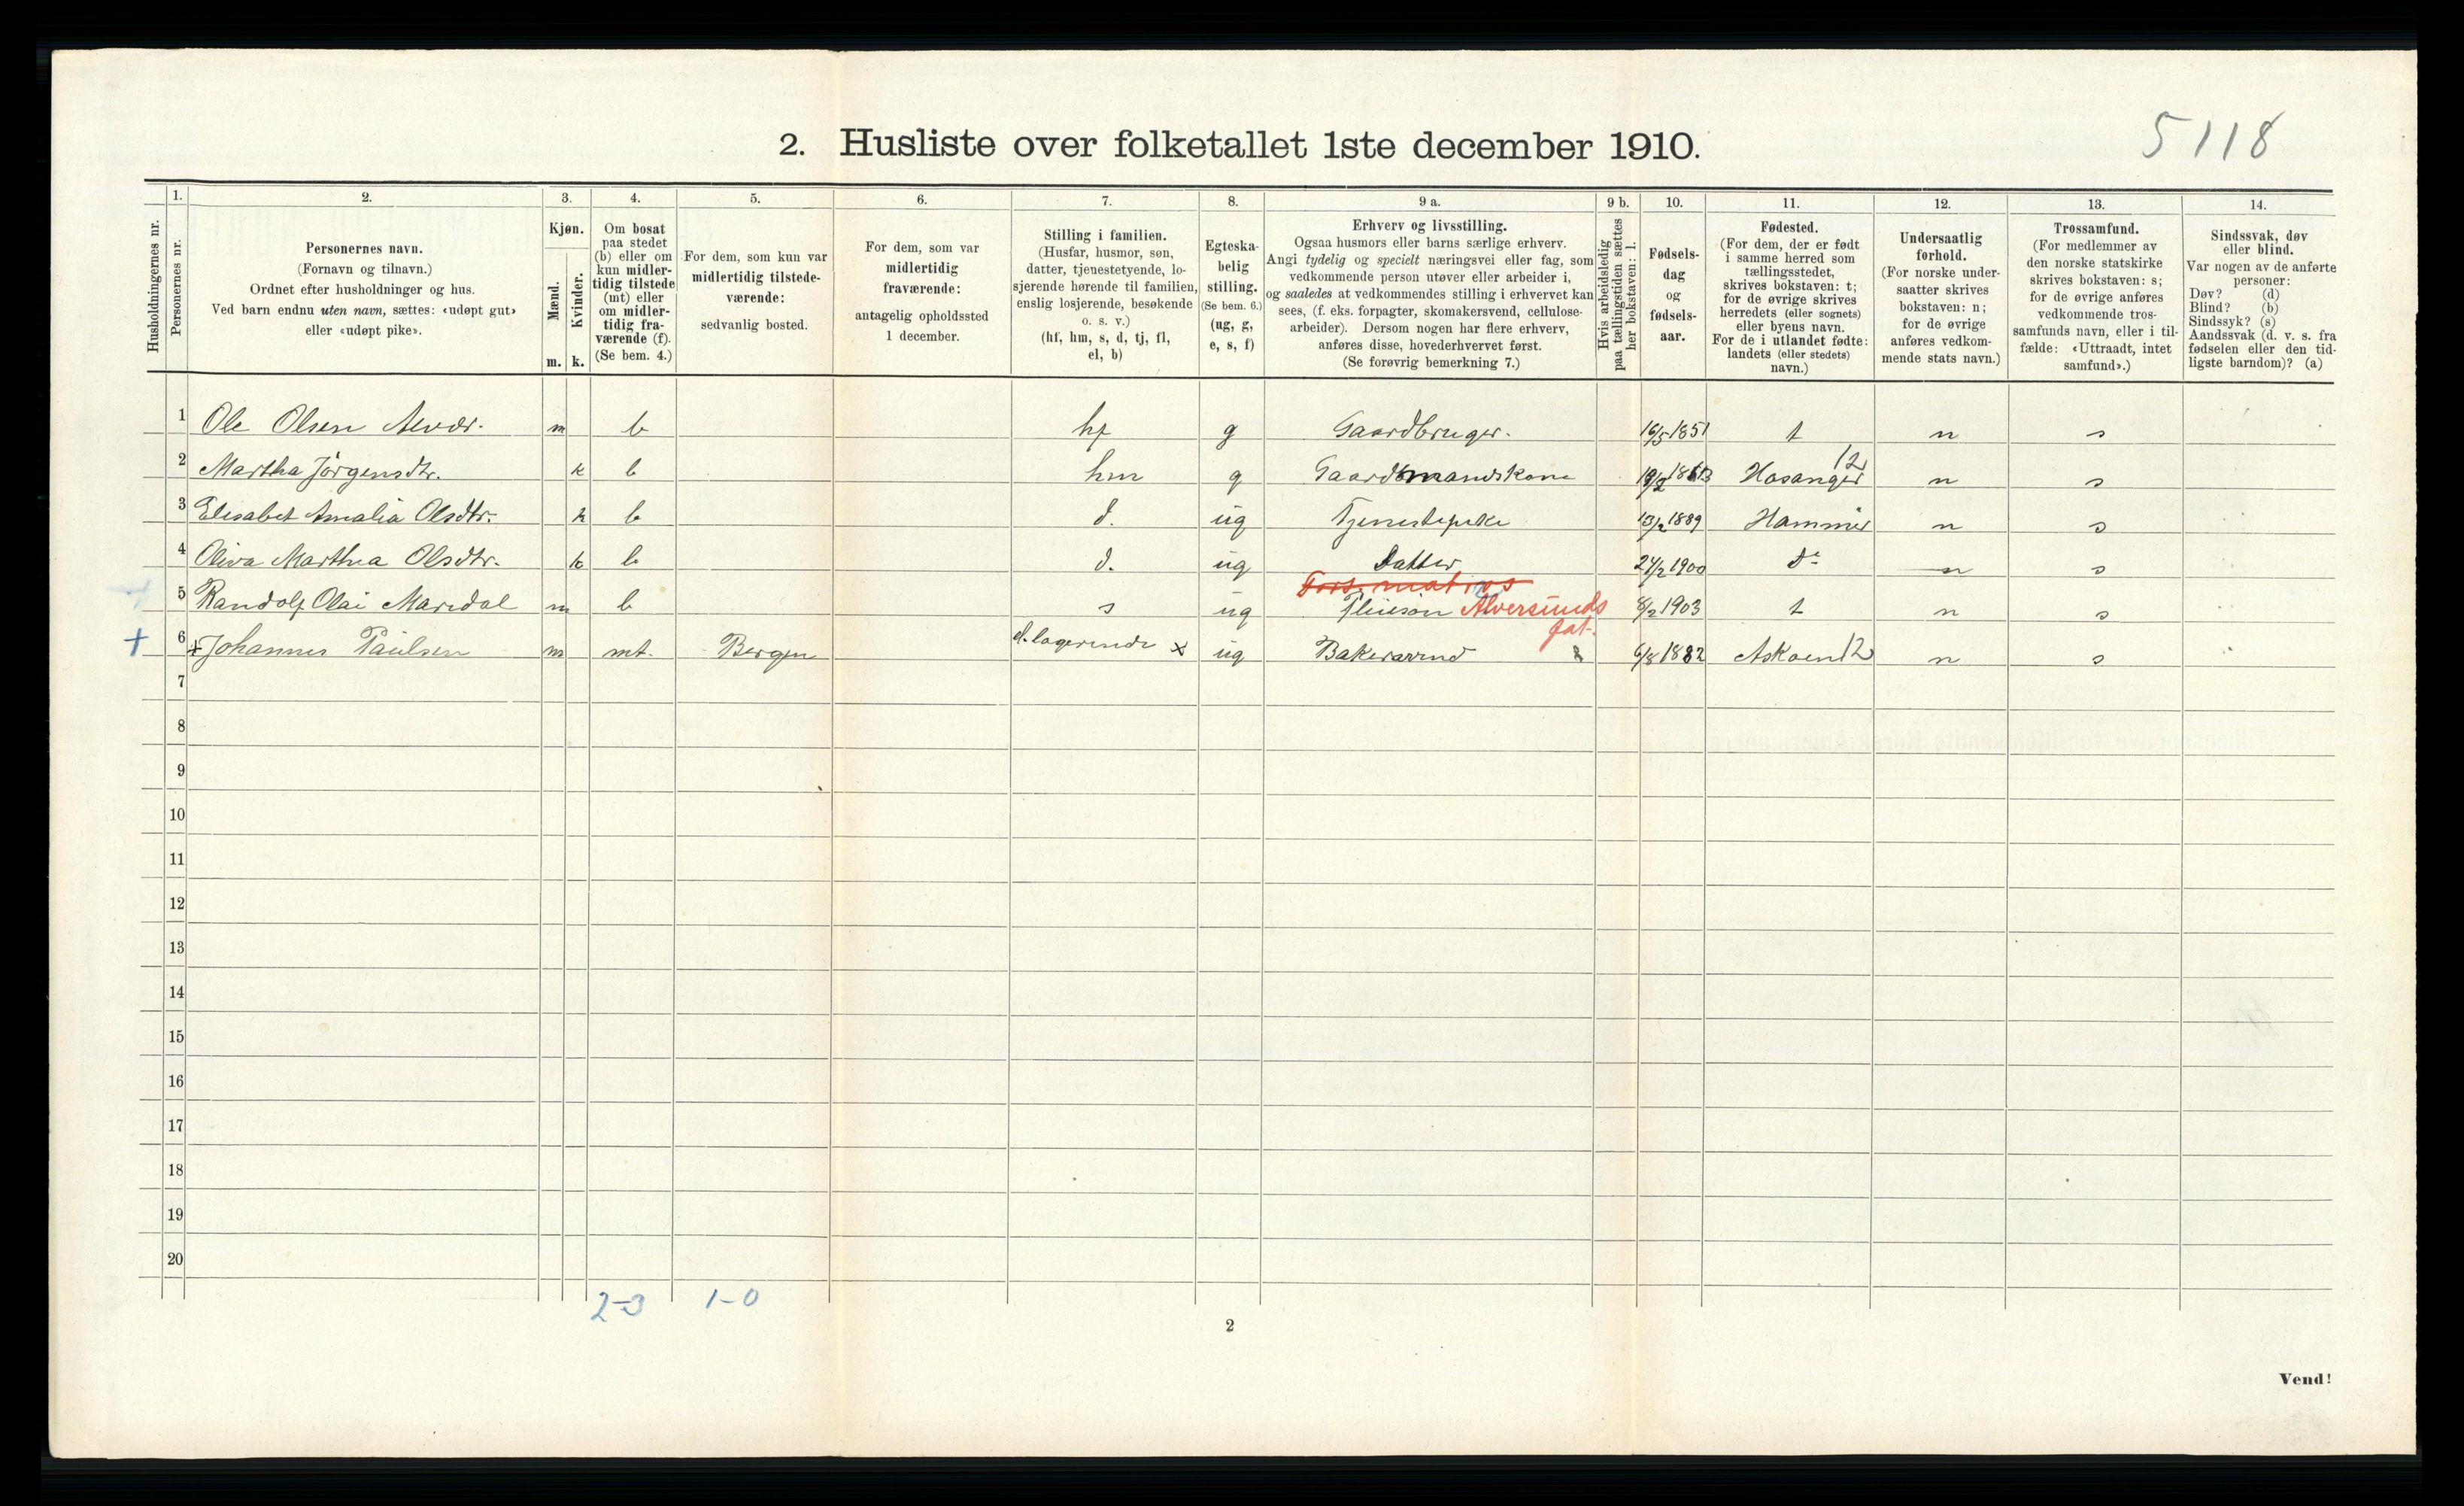 5118
2. Husliste over folketallet 1ste december 1910.
Husholdningernes nr.
1.
Personernes nr.
2.
Personernes navn.
(Fornavn og tilnavn.)
Ordnet efter husholdninger og hus.
Ved barn endnu uten navn, sættes: «udøpt gut»
eller «udøpt pike».
3.
Kjøn.
Mænd.
Kvinder.
m. k.
4.
Om bosat
paa stedet
(b) eller om
kun midler-
tidig tilstede
(mt) eller
om midler-
tidig fra-
værende (f).
(Se bem. 4.)
5.
For dem, som kun var
midlertidig tilstede-
værende:
sedvanlig bosted.
6.
For dem, som var
midlertidig
fraværende:
antagelig opholdssted
1 december.
7.
Stilling i familien.
(Husfar, husmor, søn,
datter, tjenestetyende, lo-
sjerende hørende til familien,
enslig losjerende, besøkende
o. s. v.)
(hf, hm, s, d, tj, fl,
el, b)
8.
Egteska-
belig
stilling.
(Se bem. 6.)
(ug, g,
e, s, f)
9 a.
Erhverv og livsstilling.
Ogsaa husmors eller barns særlige erhverv.
Angi tydelig og specielt næringsvei eller fag, som
vedkommende person utøver eller arbeider i,
og saaledes at vedkommendes stilling i erhvervet kan
sees, (f. eks. forpagter, skomakersvend, cellulose-
arbeider). Dersom nogen har flere erhverv,
anføres disse, hovederhvervet først.
(Se forøvrig bemerkning 7.)
9 b.
Hvis arbeidsledig
paa tællingstiden sættes
her bokstaven: l.
10.
Fødsels-
dag
og
fødsels-
aar.
11.
Fødested.
(For dem, der er født
i samme herred som
tællingsstedet,
skrives bokstaven: t;
for de øvrige skrives
herredets (eller sognets)
eller byens navn.
For de i utlandet fødte:
landets (eller stedets)
navn.)
12.
Undersaatlig
forhold.
(For norske under-
saatter skrives
bokstaven: n;
for de øvrige
anføres vedkom-
mende stats navn.)
13.
Trossamfund.
(For medlemmer av
den norske statskirke
skrives bokstaven: s;
for de øvrige anføres
vedkommende tros-
samfunds navn, eller i til-
fælde: «Uttraadt, intet
samfund».)
14.
Sindssvak, døv
eller blind.
Var nogen av de anførte
personer:
Døv? (d)
Blind? (b)
Sindssyk? (s)
Aandssvak (d. v. s. fra
fødselen eller den tid-
ligste barndom)? (a)
1 Ole Olsen m b hf g Gaardbruger. 16/5 1851 t n s
12
2 Martha Jørgensdtr. k b hm g Gaardmandskone Hosanger n s
3 Elisabet Amalia Olsdtr. k b d. ug Tjenestepike 13/2 1889 Hammer n s
4 Oliva Marthea Olsdtr. k b d. ug Datter 24/2 1900 do n s
5 Randolf Olai Maridal m b s ug Pleiesøn Alversunds 8/2 1903 t n s
fat.
+ 6 Johannes Paulsen m mt. Bergen el. logerende x ug 6/8 1882 Askøen 12 n s
7
8
9
10
11
12
13
14
15
16
17
18
19
20
2-3 1-0
2
Vend!